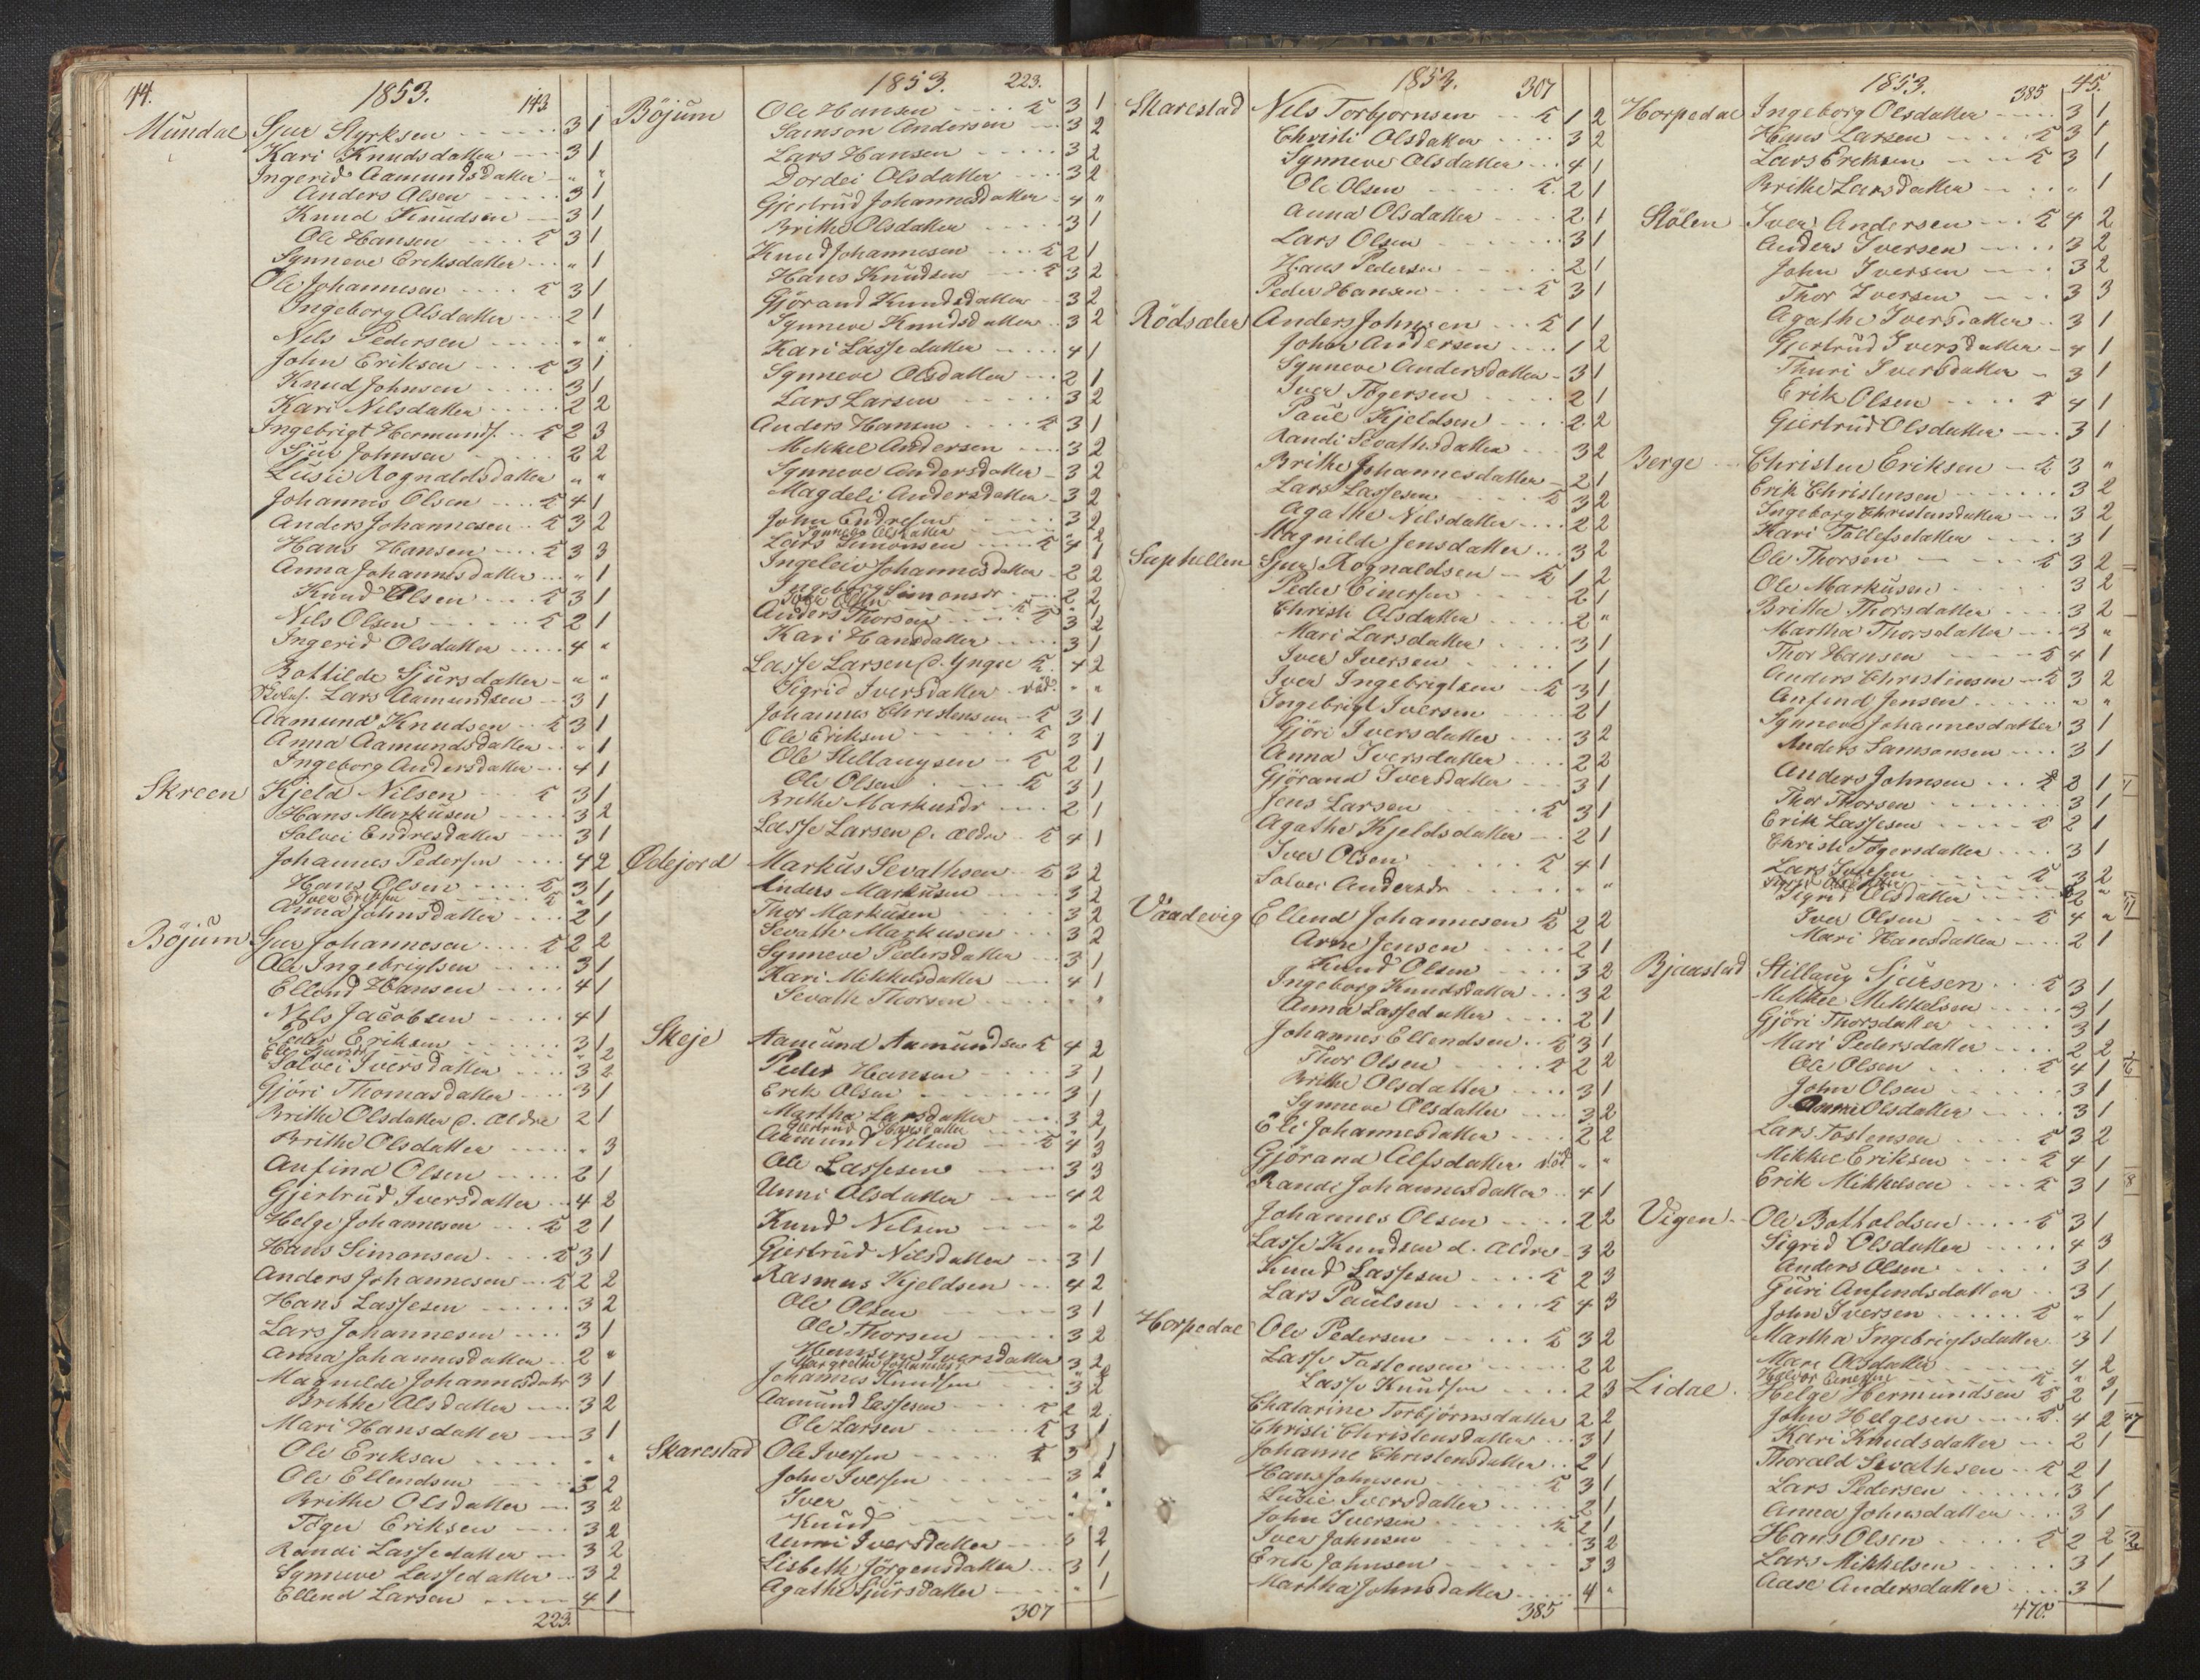 44.
1853.
143
Mundal Sjur Styrksen 3 1
Kari Knudsdatter 3 1
Ingerid Aamundsdatter " "
Anders Olsen 3 1
Knud Knudsen 3 1
Ole Hansen 3 1
Synneve Eriksdatter " 1
Ole Johannesen 3 1
Ingeborg Olsdatter 2 1
Nels Pedersen " "
John Eriksen 3 1
Knud Johnsen 3 1
Kari Nilsdatter 2 2
Ingebrigt Hermunds. 2 3
Sjur Johnsen 2 2
Lusie Rognaldsdatter " "
Johannes Olsen 4 1
Anders Johannesen 3 2
Hans Hansen 3 3
Anna Johannesdatter " 1
Knud Olsen 3 1
Nils Olsen 2 1
Ingerid Olsdatter 4 "
Bottilde Sjursdatter " "
Lars Aamundsen 3 1
Aamund Knudsen 3 1
Anna Aamundsdatter " 1
Ingeborg Andersdatter 4 1
Skreen Kjeld Nilsen 3 1
Hans Markusen 3 2
Solvei Endresdatter 3 1
Johannes Pedersen 4 2
Hans Olsen 3 1
Iver Eriksen " 1
Anna Johnsdatter 2 1
Böjum Sjur Johannesen 2 2
Ole Ingebrigtsen 3 1
Ellend Hansen 4 1
Nels Jacobsen 4 1
Peder Eriksen 3 1
Solvei Iversdatter 3 2
Gjöri Thomasdatter 3 1
Brithe Olsdatter d. Ældre 2 1
Brithe Olsdatter " 3
Anfind Olsen 2 1
Gjertrud Iversdatter 4 2
Helge Johannesen 2 1
Hans Simonsen 3 1
Anders Johannesen 2 2
Hans Lassesen 3 2
Lars Johannesen 3 1
Anna Johannesdatter 2 "
Magnilde Johannesdatr 3 1
Brithe Olsdatter 3 2
Mari Hansdatter 3 1
Ole Eriksen " "
Ole Ellendsen 3 2
Brithe Olsdatter 3 2
Töger Eriksen 3 2
Randi Lassedatter 3 2
Synneve Lassedatter 3 2
Ellend Larsen 4 1
223.
1853.
223.
Böjum Ole Hansen 3 1
Samson Andersen 3 2
Lars Hansen 3 2
Dordei Olsdatter 3 2
Gjertrud Johannesdatter 4 "
Brithe Olsdatter 3 1
Knud Johannesen 2 1
Hans Knudsen 3 2
Gjörand Knudsdatter 3 2
Synneve Knudsdatter 3 2
Kari Lassedatter 4 1
Synneve Olsdatter 2 1
Lars Larsen 3 2
Anders Hansen 3 1
Mikkel Andersen 3 2
Synneve Andersdatter 3 2
Magdeli Andersdatter 3 2
John Endresen 3 2
Synneve Olsdatter " 2
Lars Simonsen 4 1
Ingeleiv Johannesdatter 2 2
Ingeborg Simonsdr 2 2
Anders Thorsen 3 2
Kari Hansdatter 3 1
Lasse Larsen d. Yngre 4 2
Sigrid Iversdatter död. " "
Johannes Christensen 3 1
Ole Eriksen 3 1
Ole Stellaugsen 2 1
Ole Olsen 3 1
Brithe Markusdr 2 1
Lasse Larsen d. Ældre 4 1
Ødejord Markus Sevathsen 3 2
Anders Markusen 3 2
Thor Markusen 3 2
Sevath Markusen 3 2
Synneve Pedersdatter 3 1
Kari Mikkelsdatter 4 1
Sevath Thorsen " "
Skeje Aamund Aamundsen 4 2
Peder Hansen 3 1
Erik Olsen 3 1
Martha Larsdatter 3 2
Gjertrud Hansdatter " 1
Aamund Nilsen 4 3
Ole Lassesen 3 3
Unni Olsdatter 4 2
Knud Nilsen " 2
Gjertrud Nilsdatter 3 1
Rasmus Kjeldsen 4 2
Ole Olsen 3 1
Ole Thorsen 3 2
Iversdatter 3 2
Johannes Knudsen 3 2
Aamund Lassesen 2 2
Ole Larsen 3 1
Skarestad Ole Iversen 3 1
John Iversen 3 2
Iver " "
Knud "
Unni Iversdatter 3 2
Lisbeth Jörgensdatter 3 1
Agathe Sjursdatter " 1
307
1853.
307
Skarestad Nils Torbjornsen 1 2
Christi Olsdatter 3 2
Synneve Olsdatter 4 1
Ole Olsen 2 1
Anna Olsdatter 2 1
Lars Olsen 3 1
Hans Pedersen 2 1
Peder Hansen 3 1
Rödsæter Anders Johnsen 1 1
John Andersen 1 2
Synneve Andersdatter 3 1
Iver Tögersen 2 1
Paul Kjeldsen 2 2
Randi Sevathsdatter 3 2
Brithe Johannesdatter 2 1
Lars Lassesen 3 2
Agathe Nilsdatter 2 2
Magnilde Jensdatter 3 2
Suphellen Sjur Rognaldsen 1 2
Peder Einersen 2 1
Christi Olsdatter 2 "
Mari Larsdatter 3 1
Iver Iversen 1 1
Iver Ingebrigtsen 3 1
Ingebrigt Iversen 2 1
Gjöri Iversdatter 3 2
Anna Iversdatter 2 2
Gjörand Iversdatter 3 1
Jens Larsen 3 1
Agathe Kjeldsdatter 2 1
Iver Olsen 4 1
Solvei Andersdr " "
Vaadevig Ellend Johannesen 2 2
Arne Jensen 2 1
Knud Olsen 3 2
Ingeborg Knudsdatter 3 2
Anna Lassedatter 2 1
Johannes Ellendsen 3 1
Thor Olsen 2 2
Brithe Olsdatter 3 1
Synneve Olsdatter 3 2
Eli Johannesdatter 2 2
Gjörand Alfsdatter död " "
Randi Johannesdatter 4 1
Johannes Olsen 2 2
Lasse Knudsen d. Ældre 3 2
Knud Lassesen 2 3
Lars Paulsen 4 3
Horpedal Ole Pedersen 3 2
Lasse Tostensen 2 2
Lasse Knudsen 2 3
Chatarine Torbjörnsdatter 2 2
Christi Christensdatter 3 1
Johanne Christensdatter 2 1
Hans Johnsen 3 1
Lusie Iversdatter 2 1
John Iversen 2 1
Iver Johnsen 3 2
Erik Johnsen 3 3
Martha Johnsdatter 4 "
385
1853.
385
45.
Horpedal Ingeborg Olsdatter 3 1
Hans Larsen 3 1
Lars Eriksen 3 1
Brithe Larsdatter " 1
Stölen Iver Andersen 4 2
Anders Iversen 3 2
John Iversen 3 2
Thor Iversen 3 3
Agathe Iversdatter 3 1
Gjertrud Iversdatter 4 1
Thuri Iversdatter 3 1
Erik Olsen 4 1
Gjertrud Olsdatter 3 1
Berge Christen Eriksen 3 "
Erik Christensen 3 2
Ingeborg Christensdatter 3 2
Kari Tollefsdatter 3 1
Ole Thorsen 3 2
Ole Markusen 3 2
Brithe Thorsdatter 3 2
Martha Thorsdatter 3 "
Thor Hansen 4 1
Anders Christensen 3 2
Anfind Jensen " "
Synneve Johannesdatter 3 1
Anders Samsonsen 3 1
Anders Johnsen 2 1
Thor Thorsen 3 1
Erik Lassesen 2 1
Christi Tögersdatter 3 1
Lars Iversen 3 2
Sigrid Olsdatter 2 "
Iver Olsen 4 "
Mari Hansdatter 2 1
Bjaastad Stillaug Sjursen 3 1
Mikkel Mikkelsen 3 1
Gjöri Thorsdatter 3 1
Mari Pedersdatter 2 2
Ole Olsen 4 1
John Olsen 3 1
Olsdatter 3 1
Lars Tostensen 3 2
Mikkel Eriksen 4 1
Erik Mikkelsen 3 1
Vigen Ole Botholdsen 3 1
Sigrid Olsdatter 4 3
Anders Olsen 3 1
Guri Anfindsdatter 3 1
John Iversen " 1
Martha Ingebrigtsdatter 3 1
Mari Olsdatter 4 2
Halvor Einersen " 3
Lidal Helge Hermundsen 2 1
John Helgesen 4 2
Kari Knudsdatter 2 1
Thorald Sevathsen 2 1
Lars Pedersen 3 1
Anna Johnsdatter 3 1
Hans Olsen 2 2
Lars Mikkelsen 3 1
Aase Andersdatter 3 1
470.